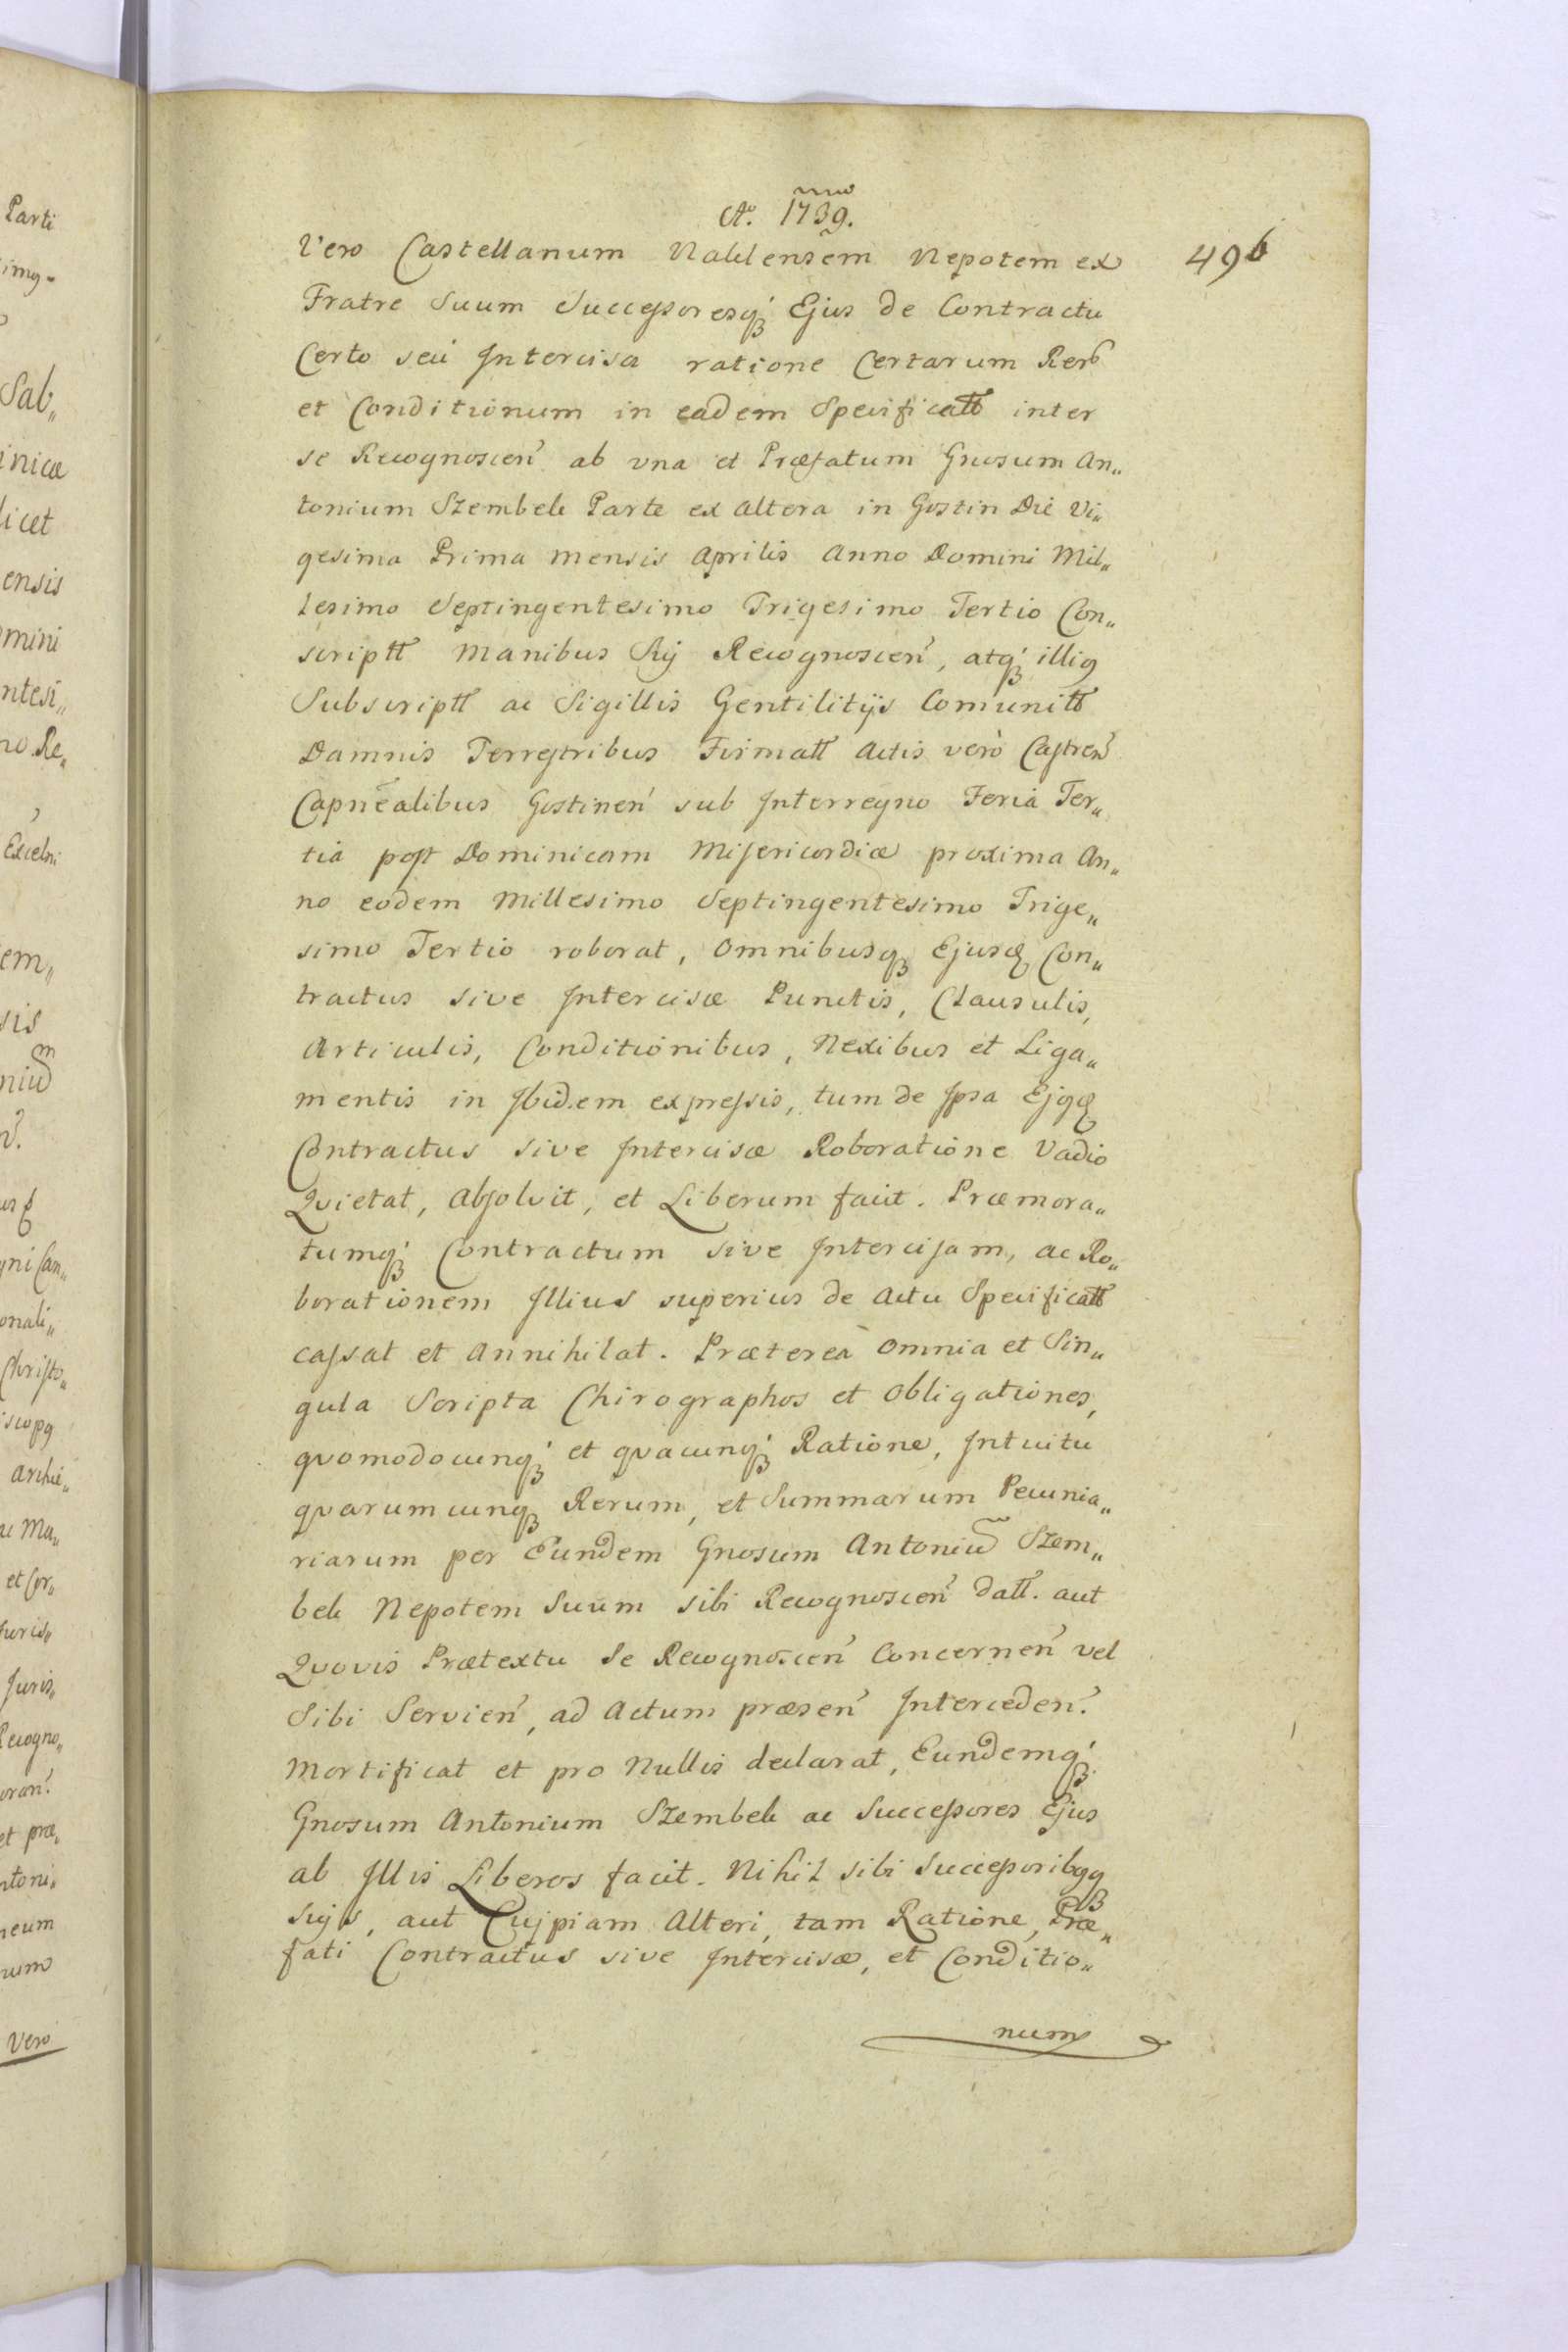 Aº. 1739.
Vero Castellanum Naklensem Nepotem ex
49b
Fratre Suum Successoresq́ꝫ Ejus de Contractu
Certo seú Intercisa ratione Certarum Rerũ
et Conditionum in eadem Specificatt inter
se Recognoscen̄ ab una et Præfatum Gnosum An„
tonium Szembek Parte ex altera in Gostin Die Vi„
gesima Prima Mensis Aprilis Anno Domini Mil„
lesimo Septingentesimo Trigesimo Tertio Con„
scriptt Manibus Sui Recognoscen̄, atq́ꝫ illiꝰ
Subscriptt ac Sigillis Gentilitijs Comunitt
Damnis Terrestribus Firmatt Actis verò Castren̄
Capnēalibus Gostinen̄ sub Interregno Feria Ter„
tiá post Dominicam Misericordiæ proxima An„
no eodem Millesimo Septingentesimo Trige„
simo Tertio roborat, Omnibusqꝫ Ejusd Con„
tractus sive Intercisæ Punctis, Clausulis,
Articulis, Conditionibus, Nexibus et Liga„
mentis in Ibidem expressis, tum de Ipsa Ejꝰd
Contractus sive Intercisæ Roboratione Vadio
Quietat, Absolvit, et Liberum facit. Præmora„
tumq́ꝫ Contractum sive Intercisam, ac Ro„
borationem Illius superius de Actu Specificatt
cassat et Annihilat. Præterea Omnia et Sin„
gula Scripta Chirographos et Obligationes,
quomodocunq́ꝫ et quacunq́ꝫ Ratione, Intuitu
quarumcunqꝫ Rerum, et Summarum Pecunia„
riarum per Eundem Gnosum Antoniũ Szem„
bek Nepotem Suum sibi Recognoscen̄ datt. aut
Quovis Prætextu Se Recognoscen̄ Concernen̄ vel
Sibi Servien̄, ad Actum præsen̄ Interceden̄.
Mortificat et pro Nullis declarat, Eundemq́ꝫ
Gnosum Antonium Szembek ac Successores Ejus
ab Illis Liberos facit. Nihil sibi Successoribꝰqꝫ
Suis, aut Cuipiam Alteri, tam Ratione, Præ„
fati Contractus sive Intercisæ, et Conditio„
num
Parti
Sab„
licet
ensis
mini
ntesi„
no Re„
Excelni
em„
sis
Christo„
ac Ma„
Juris„
Recogno„
et præ„
Vero